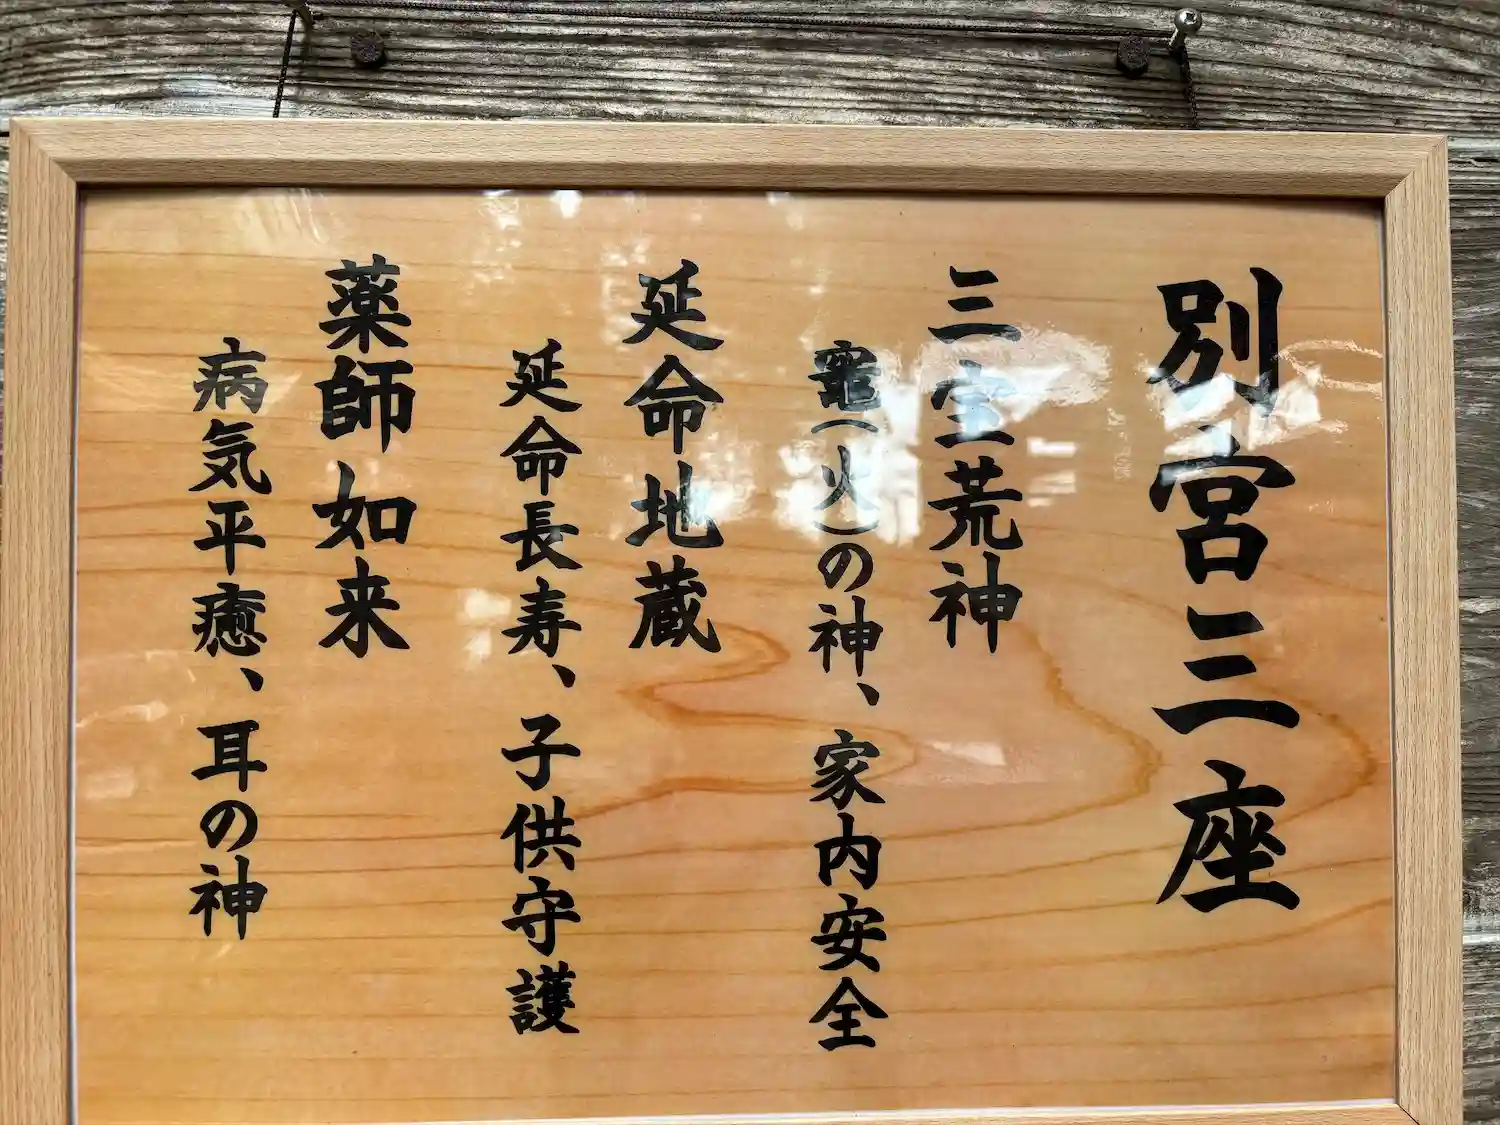 別宮三座
三宝荒神
竈(火)の神、家内安全
延命地蔵
延命長寿、子供守護
薬師如来
病気平癒、耳の神